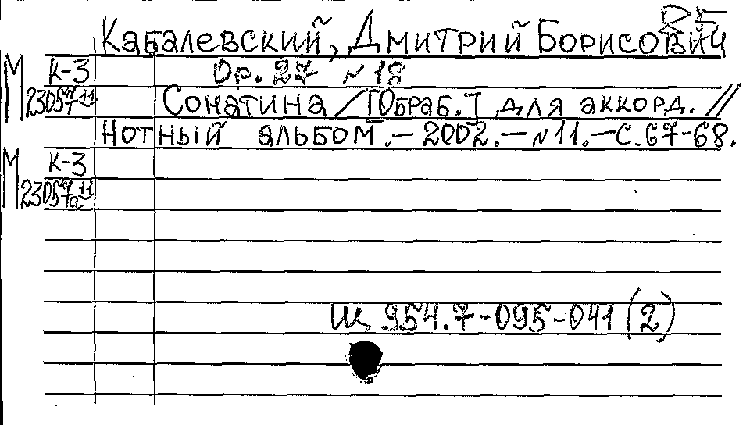 Кабалевский, Дмитрий Борисович
К-3 Op. 27 № 18
М 23057 Сонатина / [Обраб.] для аккорд. //
Нотный альбом. – 2002. – № 11. – С. 67-68.
М К-3
23057
Щ 954.7-095-041 (2)